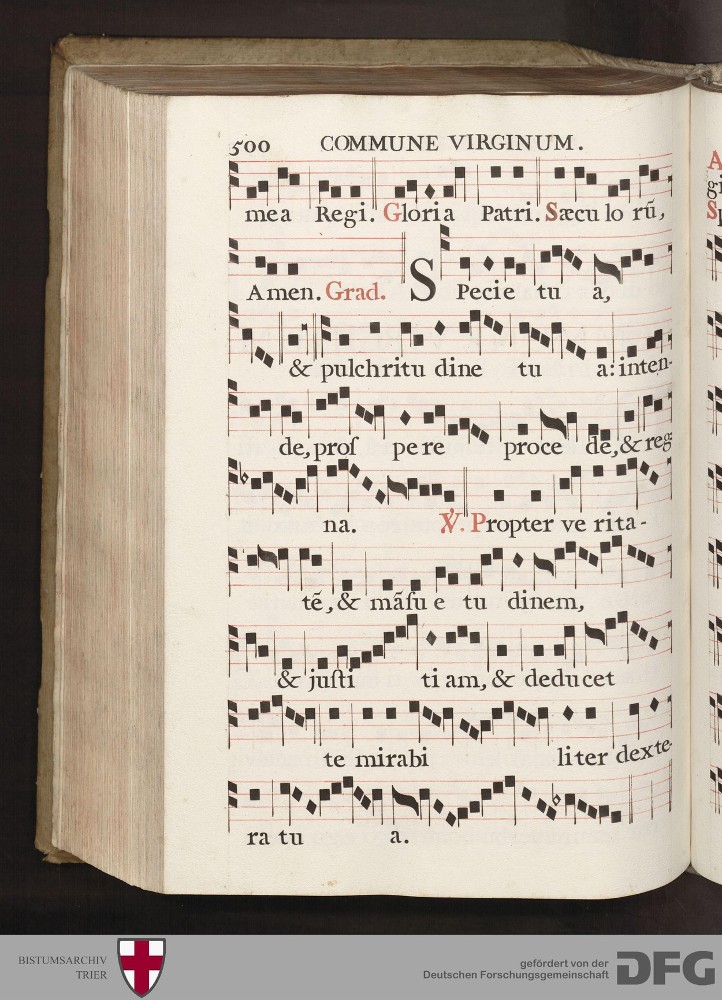 500 COMMUNE VIRGINUM.
mea Regi. Gloria Patri. Sæcu lo rũ,
Amen. Grad. SPecie tu a,
& pulchritu dine tu a: inten-
de, proſ pe re proce de, & reg-
na. ℣. Propter ve rita-
tẽ, & mãſu e tu dinem,
& juſti ti am, & deducet
te mirabi liter dexte-
ra tu a.
BISTUMSARCHIV
TRIER
gefördert von der
Deutschen Forschungsgemeinschaft
DFG